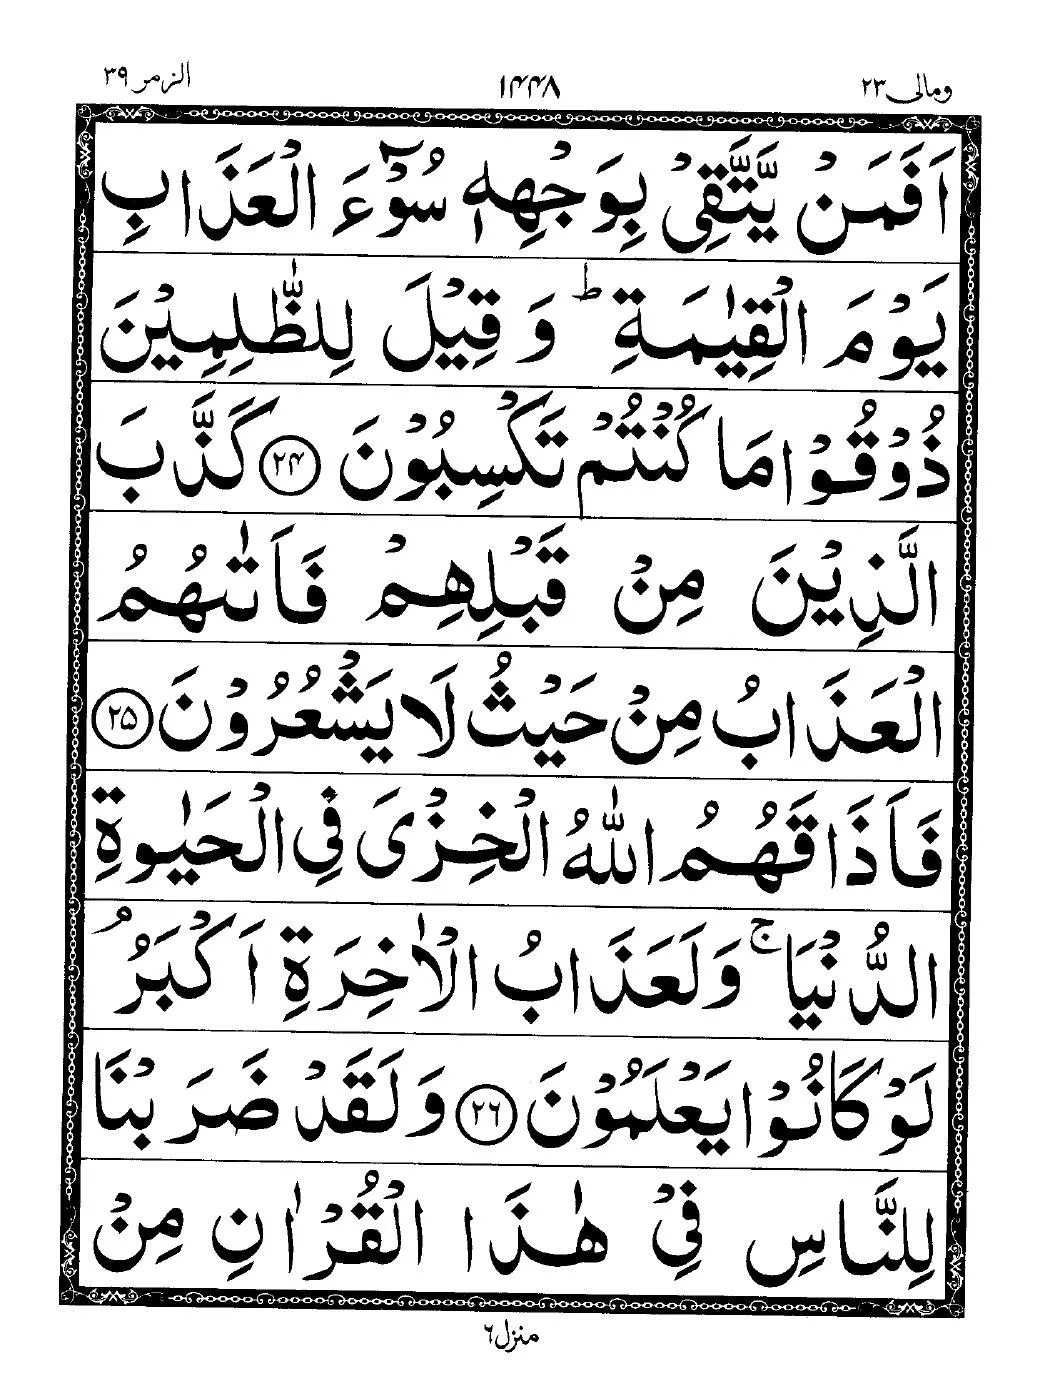 الزمر ٣٩
١٤٤٨
ومالی ٢٣
اَفَمَنْ يَّتَّقِيْ بِوَجْهِهٖ سُوْٓءَ الْعَذَابِ
يَوْمَ الْقِيٰمَةِ ؕ وَ قِيْلَ لِلظّٰلِمِيْنَ
ذُوْقُوْا مَا كُنْتُمْ تَكْسِبُوْنَ ﴿٢٤﴾ كَذَّبَ
الَّذِيْنَ مِنْ قَبْلِهِمْ فَاَتٰىهُمُ
الْعَذَابُ مِنْ حَيْثُ لَا يَشْعُرُوْنَ ﴿٢٥﴾
فَاَذَاقَهُمُ اللّٰهُ الْخِزْيَ فِي الْحَيٰوةِ
الدُّنْيَا ۚ وَلَعَذَابُ الْاٰخِرَةِ اَكْبَرُ ۘ
لَوْ كَانُوْا يَعْلَمُوْنَ ﴿٢٦﴾ وَلَقَدْ ضَرَبْنَا
لِلنَّاسِ فِيْ هٰذَا الْقُرْاٰنِ مِنْ
منزل ٦